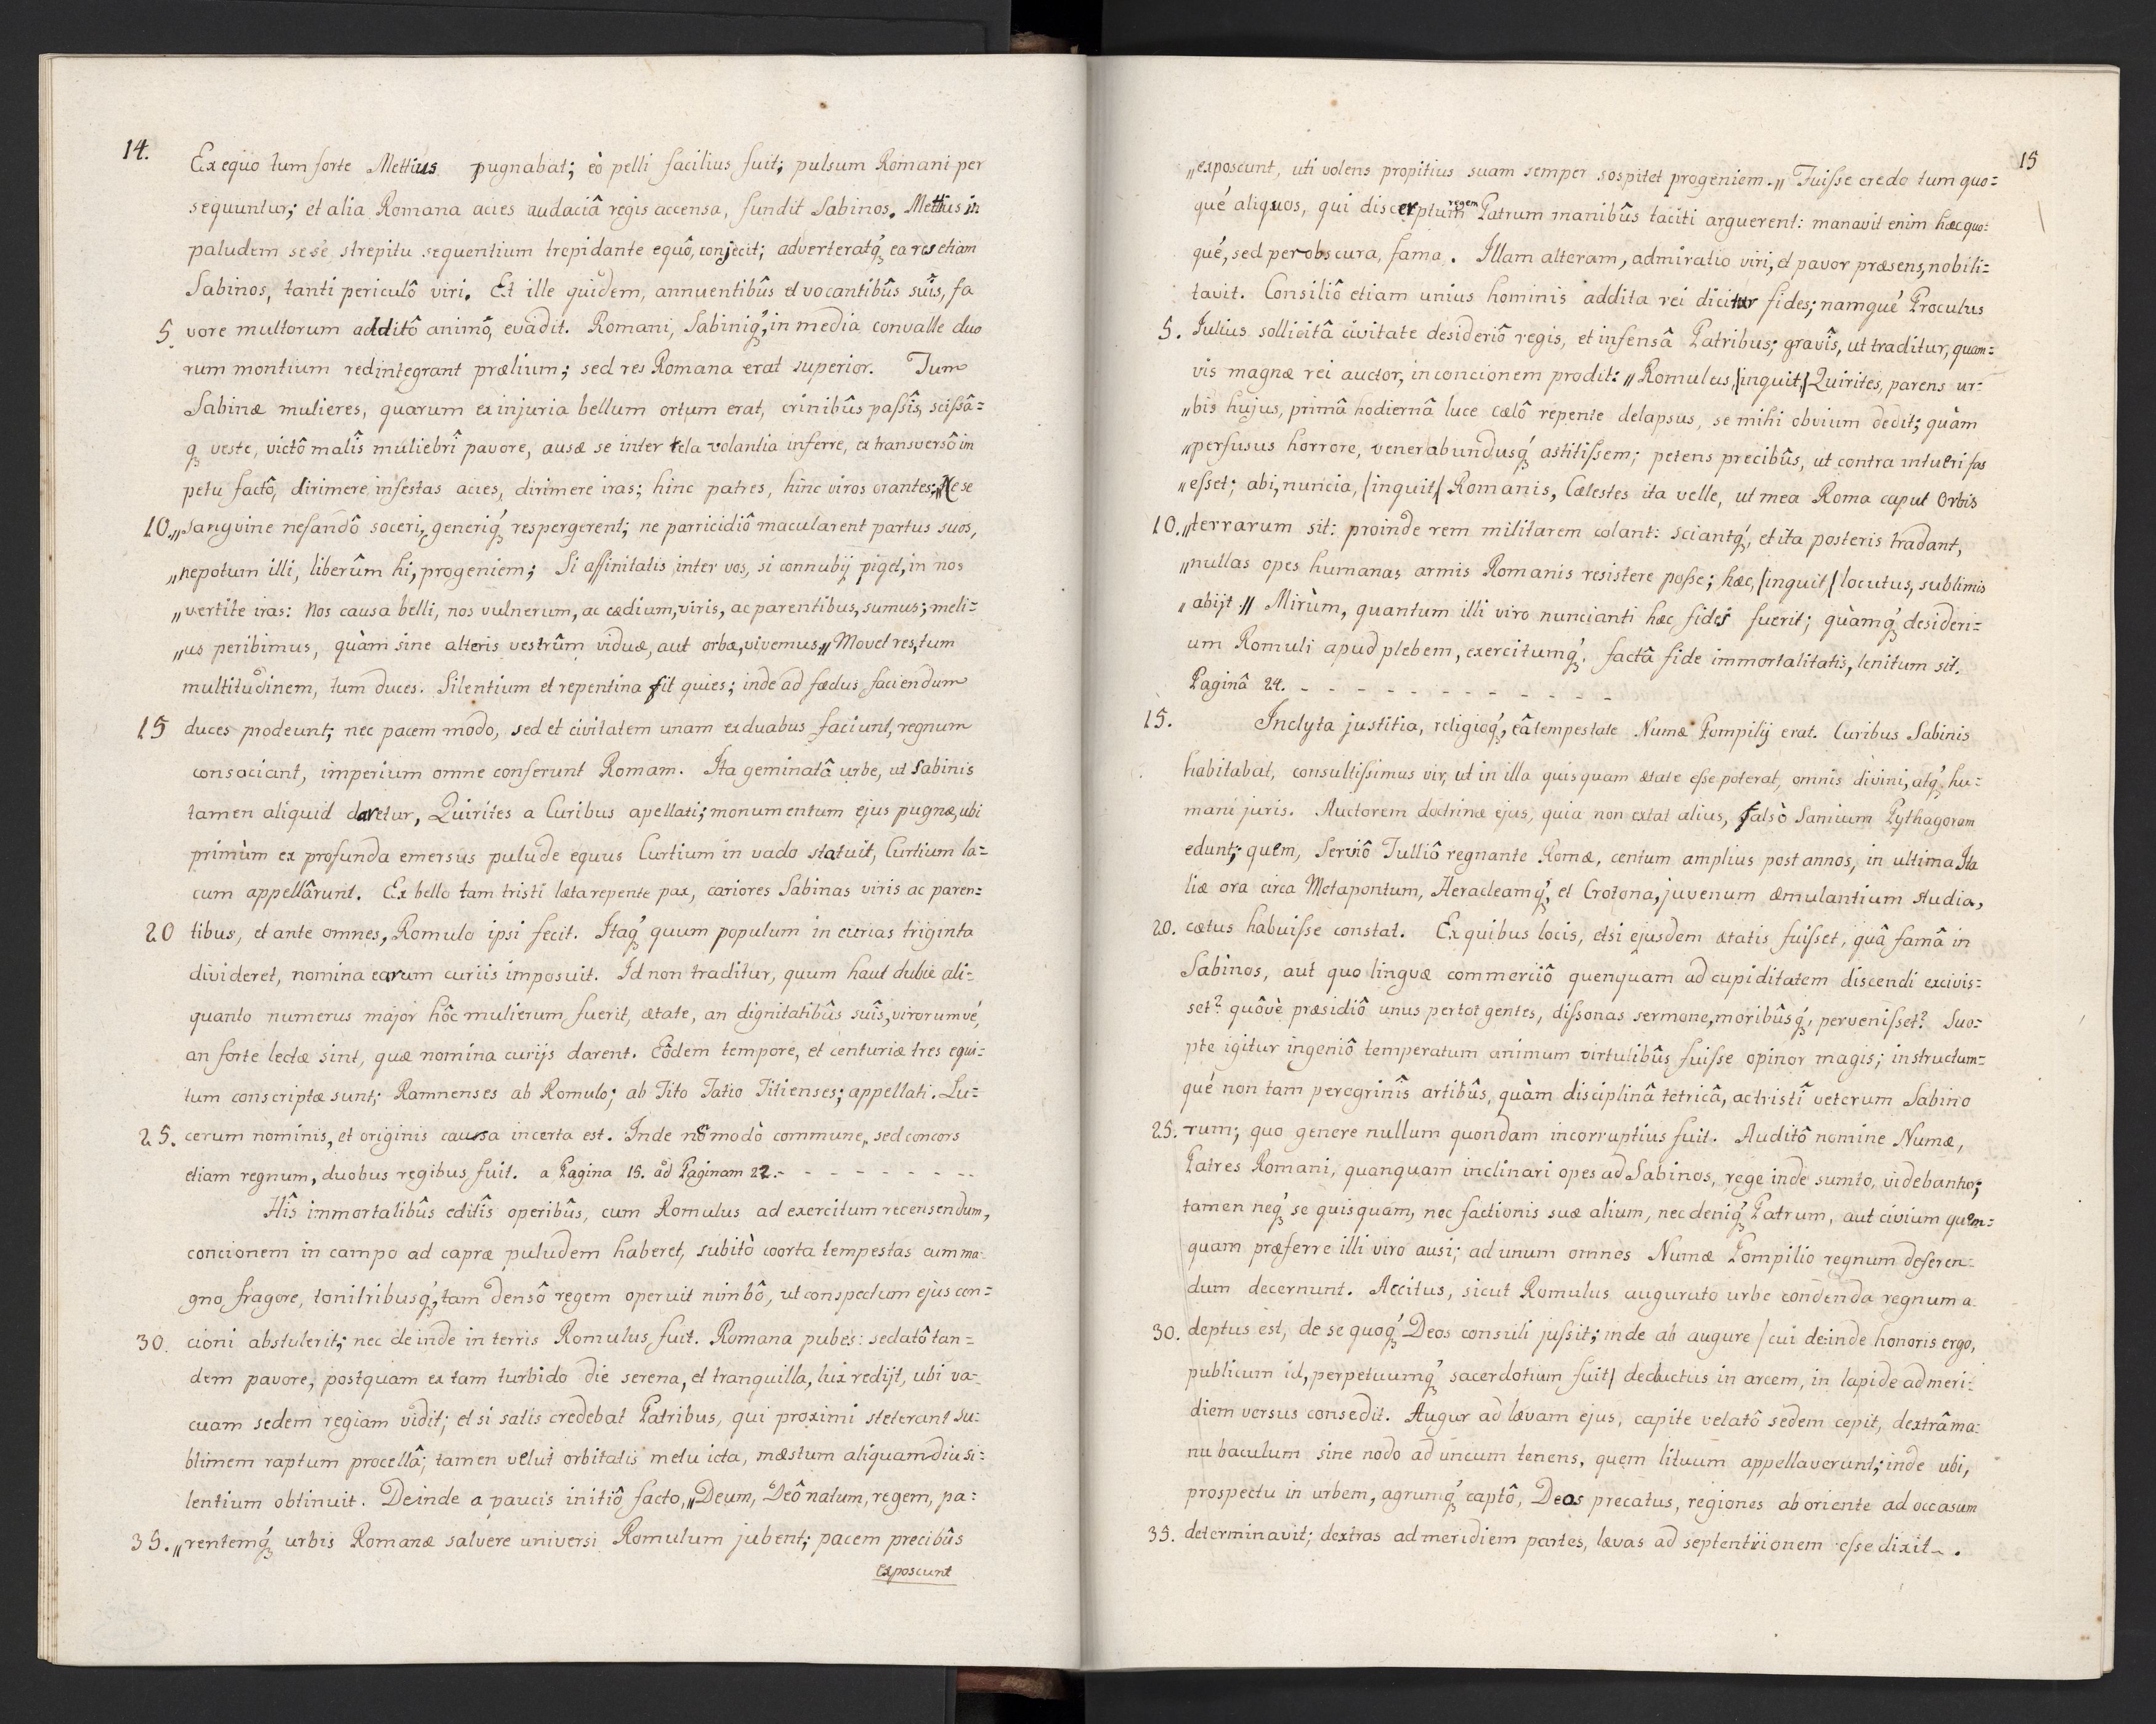 14.
Ex equo tum forte Mettius pugnabat; eò pelli facilius fuit; pulsum Romani per
sequuntur; et alia Romana acies audaciâ regis accensa, fundit Sabinos. Mettius in
paludem sese, strepitu sequentium trepidante equô, conjecit; adverteratq́ꝫ ea res etiam
Sabinos, tanti periculô viri. Et ille quidem, annuentibûs et vocantibûs suîs, fa
5. vore multorum additô animô, evadit. Romani, Sabiniq́ꝫ, in media convalle duo
rum montium redintegrant prælium; sed res Romana erat superior. Tum
Sabinæ mulieres, quarum ex injuria bellum ortum erat, crinibûs paſsîs, sciſsâ=
qꝫ veste, victô malîs muliebrî pavore, ausæ se inter tela volantia inferre, ex transversô im
petu factô, dirimere infestas acies, dirimere iras; hinc patres, hinc viros orantes; „Ne se
10. „sanguine nefandô soceri, generiq́ꝫ respergerent; ne parricidiô macularent partus suos,
„nepotum illi, liberûm hi, progeniem; Si affinitatis inter vos, si connubij piget, in nos
„vertite iras: Nos causa belli, nos vulnerum, ac cædium, viris, ac parentibus, sumus; meli=
„us peribimus, quàm sine alteris vestrûm viduæ, aut orbæ, vivemus„ Movet res, tum
multitudinem, tum duces. Silentium et repentina fit quies; inde ad fœdus faciendum
15 duces prodeunt; nec pacem modo, sed et civitatem unam ex duabus faciunt, regnum
consociant, imperium omne conferunt Romam. Ita geminatâ urbe, ut Sabinis
tamen aliquid daretur, Quirites a Curibus apellati; monumentum ejus pugnæ, ubi
primùm ex profunda emersus pulude equus Curtium in vado statuit, Curtium la=
cum appellârunt. Ex bello tam tristi læta repente pax, cariores Sabinas viris ac paren=
20 tibus, et ante omnes, Romulo ipsi fecit. Itaq́ꝫ quum populum in curias triginta
divideret, nomina earum curiis imposuit. Id non traditur, quum haut dubie ali=
quanto numerus major hôc mulierum fuerit, ætate, an dignitatibûs suîs, virorumvé,
an forte lectæ sint, quæ nomina curijs darent. Eôdem tempore, et centuriæ tres equi=
tum conscriptæ sunt; Ramnenses ab Romulo; ab Tito Tatio Titienses; appellati. Lu=
25. cerum nominis, et originis causa incerta est. Inde nõ modò commune, sed concors
etiam regnum, duobus regibus fuit. a Pagina 15. ad Paginam 22. - - - - - - - - -
Hîs immortalibûs editîs operibûs, cum Romulus ad exercitum recensendum,
concionem in campo ad capræ puludem haberet, subitò coorta tempestas cum ma=
gno fragore, tonitribusq́ꝫ, tam densô regem operuit nimbô, ut conspectum ejus con=
30. cioni abstulerit; nec deinde in terris Romulus fuit. Romana pubes: sedatô tan=
dem pavore, postquam ex tam turbido die serena, et tranquilla, lux redijt, ubi va=
cuam sedem regiam vidit; et si satis credebat Patribus, qui proximi steterant su=
blimem raptum procellâ; tamen velut orbitatis metu icta, mæstum aliquamdiu si=
lentium obtinuit. Deinde a paucis initiô facto, „Deum, Deô natum, regem, pa=
35. „rentemq́ꝫ urbis Romanæ salvere universi Romulum jubent; pacem precibûs
exposcunt
15
„exposcunt, uti volens propitius suam semper sospitet progeniem.„ Fuiſse credo tum quo=
qué aliquos, qui discerptum regem Patrum manibûs taciti arguerent: manavit enim hæc quo=
qué, sed perobscura, fama. Illam alteram, admiratio viri, et pavor præsens, nobili=
tavit. Consiliô etiam unius hominis addita rei dicitur fides; namqué Proculus
5. Julius sollicitâ civitate desideriô regis, et infensâ Patribus; gravîs, ut traditur, quam=
vis magnæ rei auctor, in concionem prodit: „Romulus, /inquit,/ Quirites, parens ur=
„bis hujus, primâ hodiernâ luce cælô repente delapsus, se mihi obvium dedit; quàm
„perfusus horrore, venerabundusq́ꝫ astitiſsem; petens precibûs, ut contra intueri fas
„eſset; abi, nuncia, /inquit/ Romanis, Cælestes ita velle, ut mea Roma caput Orbis
10. „terrarum sit: proinde rem militarem colant: sciantq́ꝫ, et ita posteris tradant,
„nullas opes humanas armis Romanis resistere poſse; hæc, /inquit/ locutus, sublimis
„abijt.„ Mirùm, quantum illi viro nuncianti hæc fides fuerit; quàmq́ꝫ desideri=
um Romuli apud plebem, exercitumq́ꝫ. factâ fide immortalitatis, lenitum sit.
Paginâ 24. - - - - - - - - - - - -
15. Inclyta justitia, religioq́ꝫ, eâ tempestate Numæ Pompilij erat. Curibus Sabinis
habitabat, consultiſsimus vir, ut in illa quisquam ætate eſse poterat, omnis divini, atq́ꝫ hu=
mani juris. Auctorem doctrinæ ejus, quia non extat alius, falsò Samium Pythagoram
edunt; quem, Serviô Tulliô regnante Romæ, centum amplius post annos, in ultima Ita
liæ ora circa Metapontum, Heracleamq́ꝫ, et Crotona, juvenum æmulantium studia,
20. cætus habuiſse constat. Ex quibus locis, etsi ejusdem ætatis fuiſset, quâ famâ in
Sabinos, aut quo linguæ commerciô quenquam ad cupiditatem discendi excivis=
set? quôvè præsidiô unus per tot gentes, diſsonas sermone, moribûsq́ꝫ, perveniſset? Suo=
pte igitur ingeniô temperatum animum virtutibûs fuiſse opinor magis; instructum=
qué non tam peregrinîs artibûs, quàm disciplinâ tetricâ, ac tristî veterum Sabino
25. rum; quo genere nullum quondam incorruptius fuit. Auditô nomine Numæ,
Patres Romani, quanquam inclinari opes ad Sabinos, rege inde sumto, videbantur;
tamen neq́ꝫ se quisquam, nec factionis suæ alium, nec deniq́ꝫ Patrum, aut civium quem=
quam præferre illi viro ausi; ad unum omnes Numæ Pompilio regnum deferen=
dum decernunt. Accitus, sicut Romulus augurato urbe condenda regnum a
30. deptus est, de se quoq́ꝫ Deos consuli juſsit; inde ab augure /cui deinde honoris ergo,
publicum id, perpetuumq́ꝫ sacerdotium fuit/ deductus in arcem, in lapide ad meri=
diem versus consedit. Augur ad lævam ejus, capite velatô sedem cepit, dextrâ ma=
nu baculum sine nodo aduncum tenens, quem lituum appellaverunt; inde ubi,
prospectu in urbem, agrumq́ꝫ captô, Deos precatus, regiones ab oriente ad occasum
35. determinavit; dextras ad meridiem partes, lævas ad septentrionem eſse dixit.